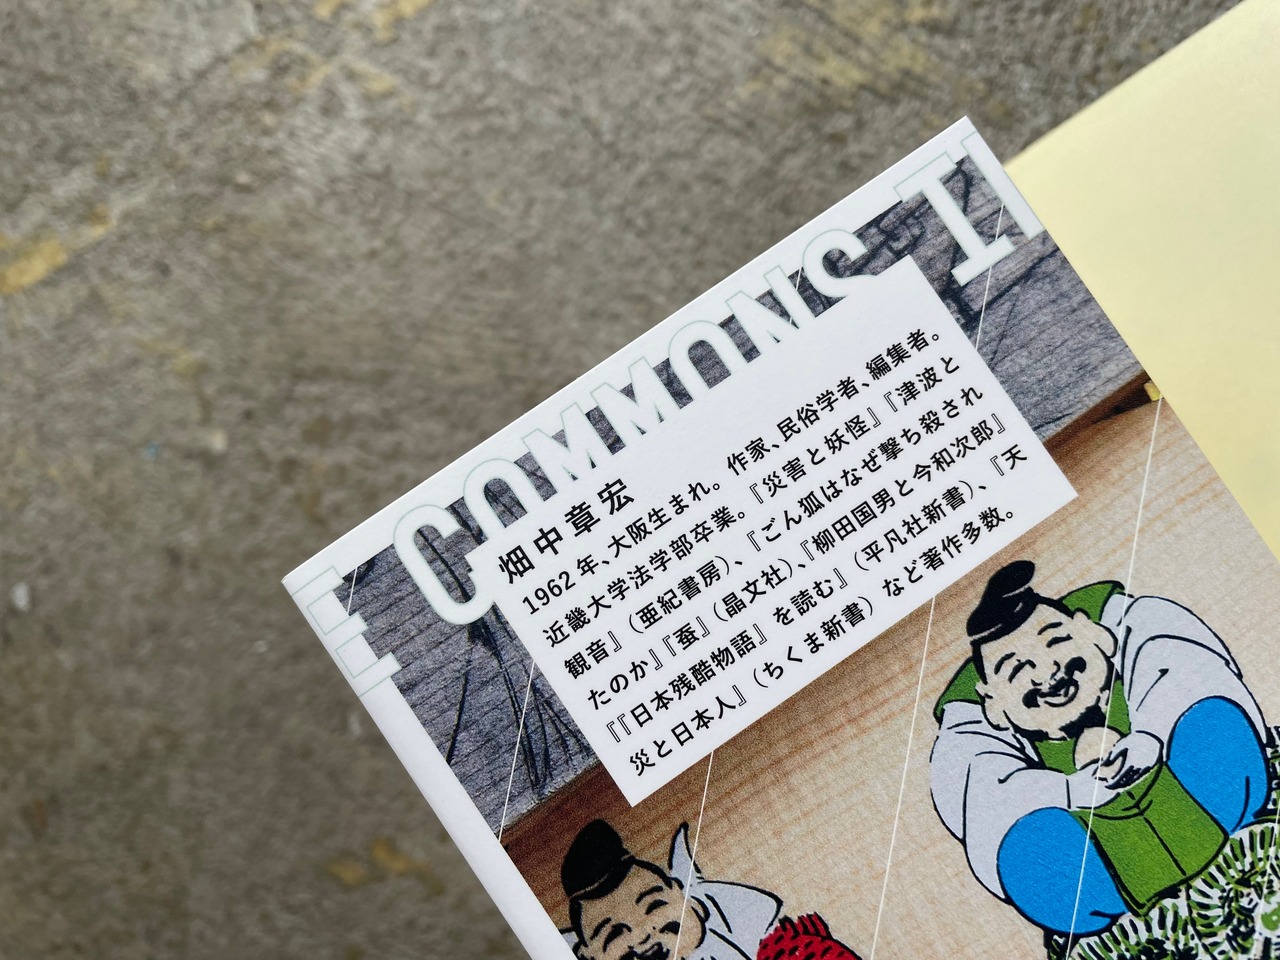 E COMMONS I
畑中章宏
1962年、大阪生まれ。作家、民俗学者、編集者。
近畿大学法学部卒業。『災害と妖怪』『津波と
観音』(亜紀書房)、『ごん狐はなぜ撃ち殺され
たのか』『蚕』(晶文社)、『柳田国男と今和次郎』
『『日本残酷物語』を読む』(平凡社新書)、『天
災と日本人』(ちくま新書)など著作多数。